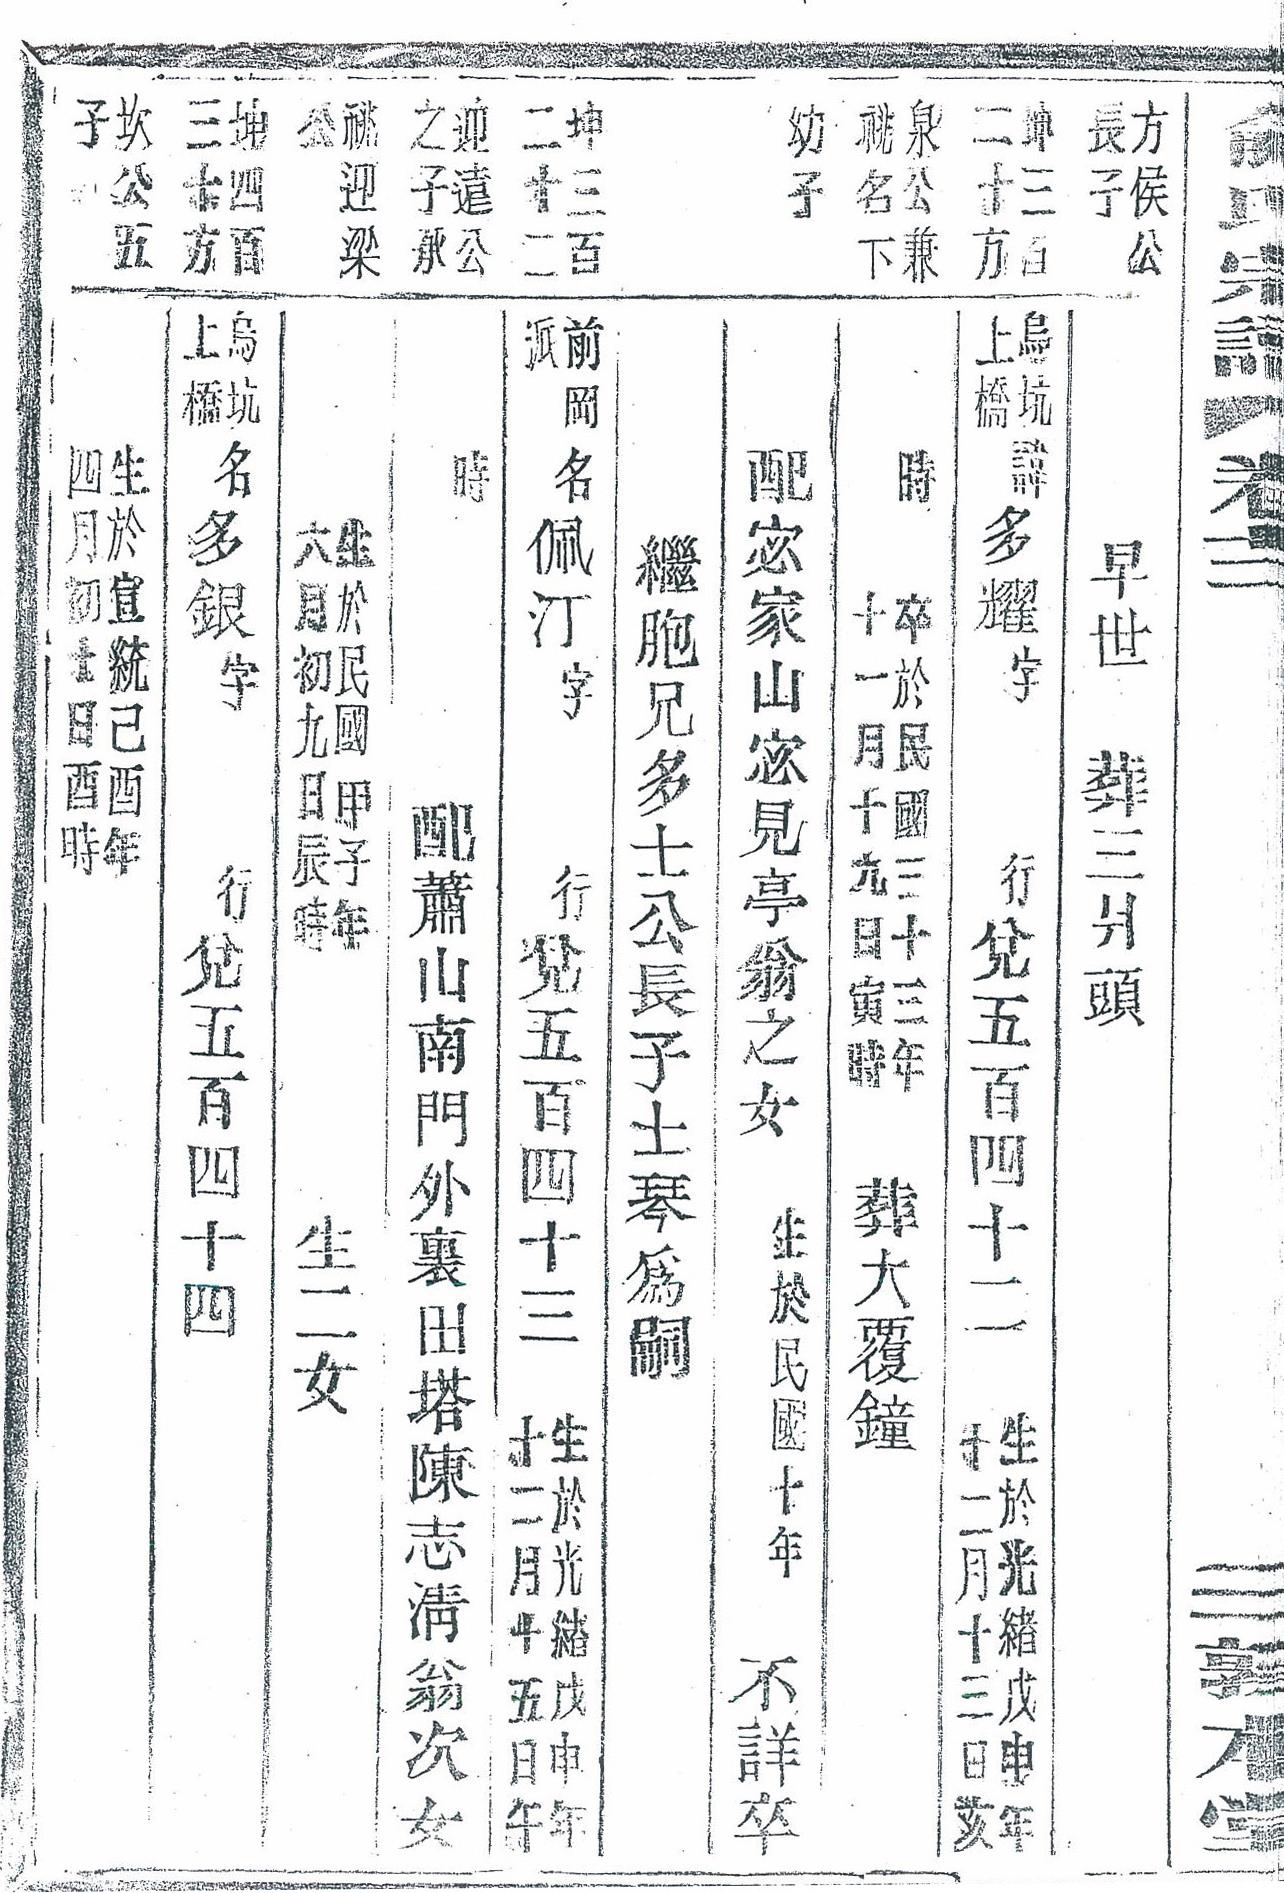 俞氏宗譜 卷三
敦本堂
方侯公
長子
早世 葬三爿頭
坤三百
二十方
烏坑
上橋
諱多耀字 行兌五百四十二 生於光緒戊申年
十二月十三日亥
泉公兼
祧名下
時 卒於民國三十三年
十一月十九日寅時 葬大覆鐘
幼子
配宓家山宓見亭翁之女 生於民國十年 不詳卒
繼胞兄多士公長子士琴爲嗣
坤三百
二十二
前岡
派
名佩汀字 行兌五百四十三 生於光緒戊申年
十二月十五日午
迎遠公
之子承
時 配蕭山南門外裏田塔陳志淸翁次女
祧迎梁
公
生於民國甲子年
六月初九日辰時 生二女
坤四百
三十方
烏坑
上橋
名多銀字 行兌五百四十四
坎公五
子
生於宣統己酉年
四月初十日酉時